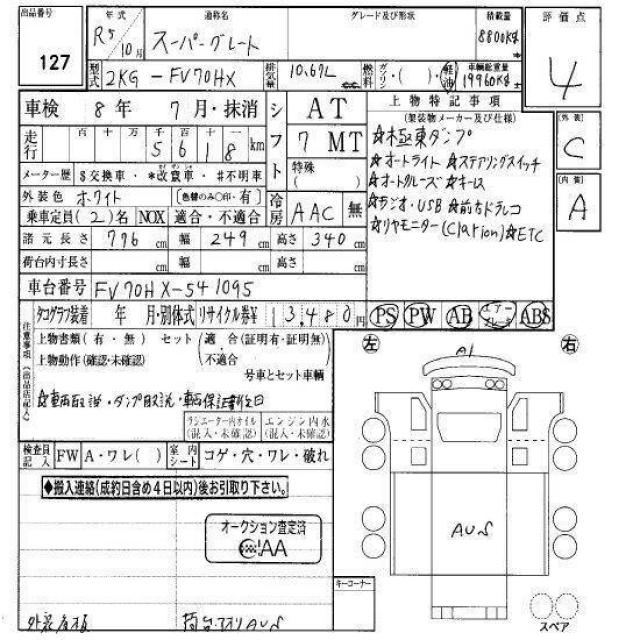 出品番号
127
年式
R5
10月
通称名
スーパーグレート
グレード及び形状
積載量
8800Kg
評価点
4
型式
2KG-FV70HX
排気量
10.67L
燃料
ガソリン・( )・軽油
車輌総重量
19960Kg
車検 8年 7月・抹消
シフト
AT
7 MT
特殊
( )
走行
百 十 万 千 百 十 一
5 6 1 8 km
メーター歴 $交換車・*改ざん車・#不明車
外装色 ホワイト
[色替のみ○印・有]
乗車定員(2)名 NOX 適合・不適合
冷房
AAC 無
諸元長さ 776cm 幅 249cm 高さ 340cm
荷台内寸長さ cm 幅 cm 高さ cm
車台番号 FV70HX-541095
上物特記事項
(架装物メーカー及び仕様)
☆極東ダンプ
☆オートライト ☆ステアリングスイッチ
☆オートクルーズ ☆キーレス
☆ラジオ・USB ☆前方ドラレコ
☆リヤモニター(Clarion) ☆ETC
外装
C
内装
A
タコグラフ装着 年 月・別体式 リサイクル券¥ 13,480円
PS PW AB エアーブレーキ ABS
注意事項(出品店記入)
上物書類(有・無) セット(適合(証明有・証明無)
上物動作(確認・未確認) 不適合)
号車とセット車輌
☆車両取説・ダンプ取説・車両保証書後日
ラジエーター内オイル
(混入・未確認)
エンジン内水
(混入・未確認)
検査員記入
FW A・ワレ( )
室内シート
コゲ・穴・ワレ・破れ
◆搬入連絡(成約日含め4日以内)後お引取り下さい。
オークション査定済
AA
左
右
A1
AUS
キーコーナー
スペア
荷台内AUS